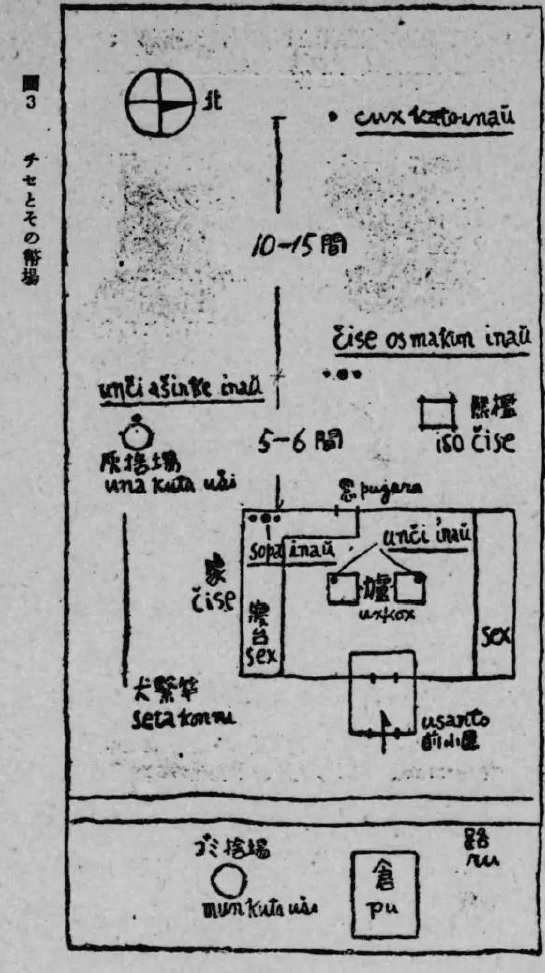 圖3 チセとその幣場
北
cux kato inaŭ
10-15間
čise osmakun inaŭ
unči ašinke inaŭ
熊檻
iso čise
5-6間
灰捨場
una kuta uši
窓 pujara
sopa inaŭ
unči inaŭ
家
čise
爐
寢台
sex
sex
犬繋竿
seta konni
usanto
前小屋
路
ru
ゴミ捨場
mun kuta uši
倉
pu